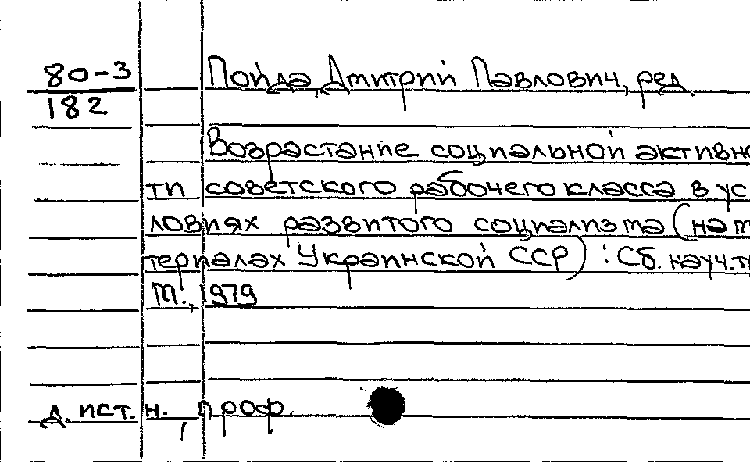 80-3
182
Пойда, Дмитрий Павлович, ред.
Возрастание социальной активнос
ти советского рабочего класса в ус
ловиях развитого социализма (на м
териалах Украинской ССР) : Сб. науч. т
т., 1979
д. ист. н., проф.